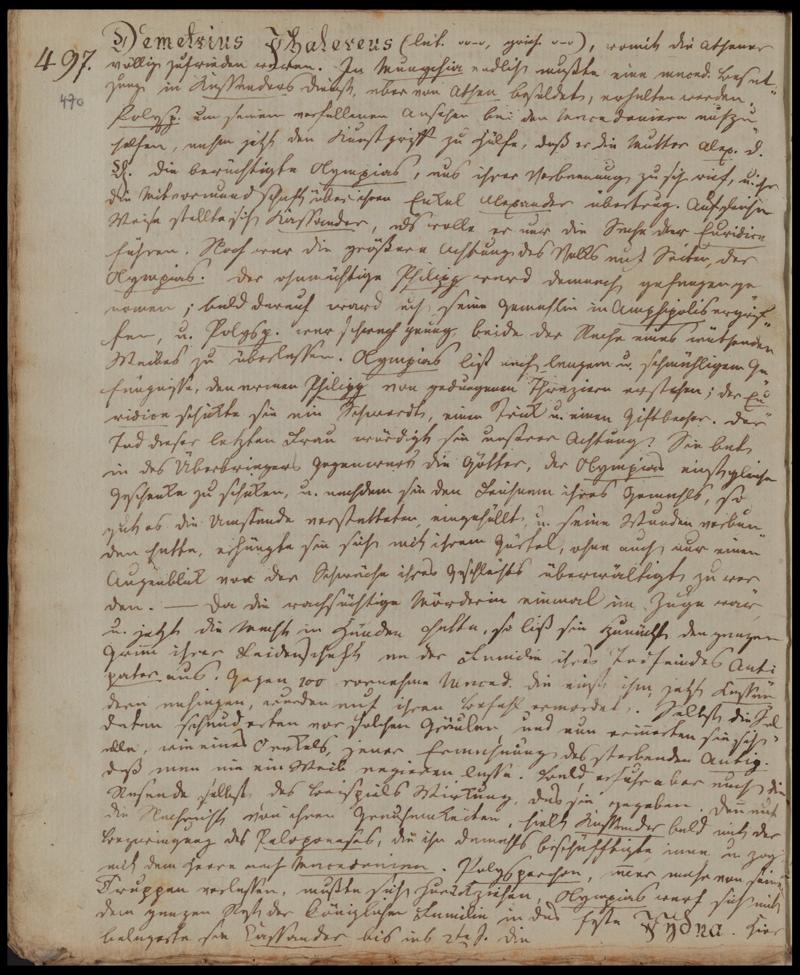 497. Demetrius Phalereus (lat. ᴗ–ᴗ–, grich. ᴗ–ᴗ), womit die Athener
470 völlig zufrieden waren. In Munychia endlich mußte eine maced. Besat-
zung in Kassanders Dienst, aber von Athen besoldet, erhalten werden.
Polysp. um seinem verfallenen Ansehen bei den Macedoniern aufzu
helfen, nahm jetzt den Kunstgriff zu Hilfe, daß er die Mutter Alex. d.
G. die berüchtigte Olympias, aus ihrer Verbannung zu sich rief, u. ihr
die Mitvormundschaft über ihren Enkel Alexander übertrug. Auf gleiche
Weise stellte sich Kassander, als wolle er nur die Sache der Euridice
führen. Noch war die größere Achtung des Volks auf Seiten der
Olympias. Der ohnmächtige Philipp ward demnach gefangen ge
nomen; bald darauf ward auch seine Gemahlin in Amphipolis ergrif-
fen, u. Polysp. war schwach genug, beide der Rache eines wüthenden
Weibes zu überlassen. Olympias ließ nach langem u. schmähligem Ge
fängnisse, den armen Philipp von gedungenen Thraziern erstechen; der Eu
ridice schikte sie ein Schwerdt, einen Strik u. einen Giftbecher. Der
Tod dieser letzten Frau würdigt sie unserer Achtung. Sie bat
in des Überbringers Gegenwart die Götter, der Olympias einst gleiche
Geschenke zu schiken, u. nachdem sie den Leichnam ihres Gemahls, so
gut es die Umstände verstatteten, eingehüllt, u. seine Wunden verbun
den hatte, erhängte sie sich mit ihrem Gürtel, ohne auch nur einen
Augenblik von der Schwäche ihres Geschlechts überwältigt zu wer
den. — Da die rachsüchtige Mörderin einmal im Zuge war
u. jetzt die Macht in Händen hatte, so ließ sie zunächst den ganzen
Grimm ihrer Leidenschaft an der Familie ihres Todfeindes Anti
pater aus. Gegen 100 vornehme Maced. die einst ihm, jetzt Kassan
dern anhingen, wurden auf ihren Befehl ermordet. Selbst die Sol
daten schauderten vor solchen Gräueln, und nun erinnerten sie sich
alle, wie eines Orakels, jener Ermahnung des sterbenden Antip.
daß man nie ein Weib regieren lasse. Bald erfuhr aber auch die
Rasende selbst, des Beispiels Wirkung, das sie gegeben. Denn auf
die Nachricht von ihren Grausamkeiten, hielt Kassander bald mit der
Bezwingung des Peloponeses, die ihn damahls beschäfftigte inne, u. zog
mit dem Heere nach Macedonien. Polysperchon, war mehr von seinen
Truppen verlassen, mußte sich zurükziehen, Olympias warf sich mit
dem ganzen Rest der königlichen Familie in das feste Pydna. Hier
belagerte sie Cassander bis ins 2te J. die